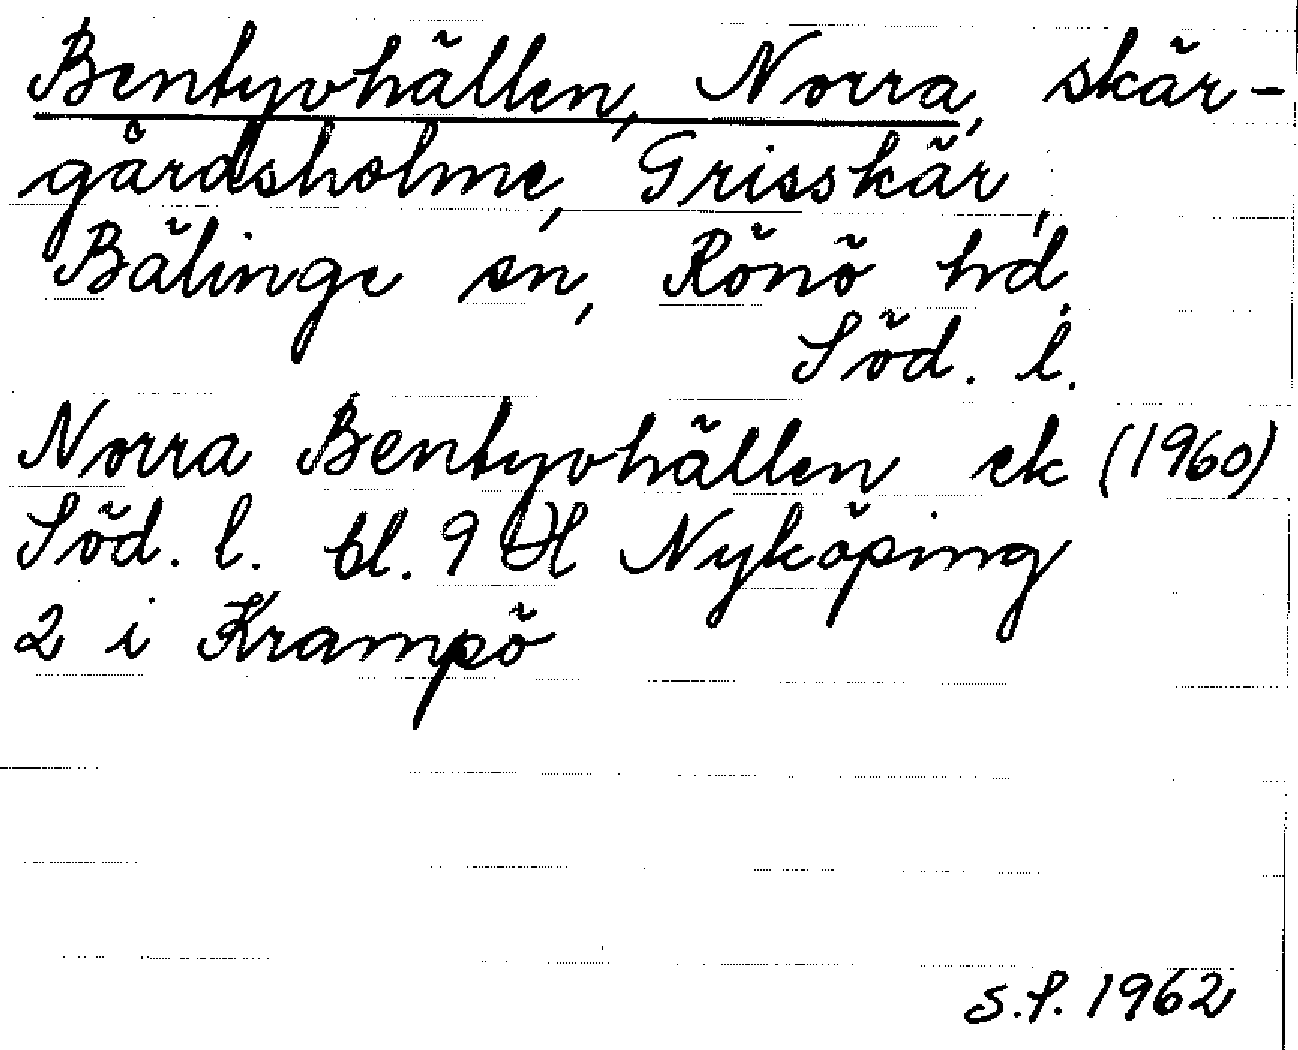 Bentyvhällen, Norra, skär-
gårdsholme, Grisskär,
Bälinge sn, Rönö hd.
Söd. l.
Norra Bentyvhällen ek (1960)
Söd. l. bl. 9 H Nyköping
2 i Krampö
S.P. 1962